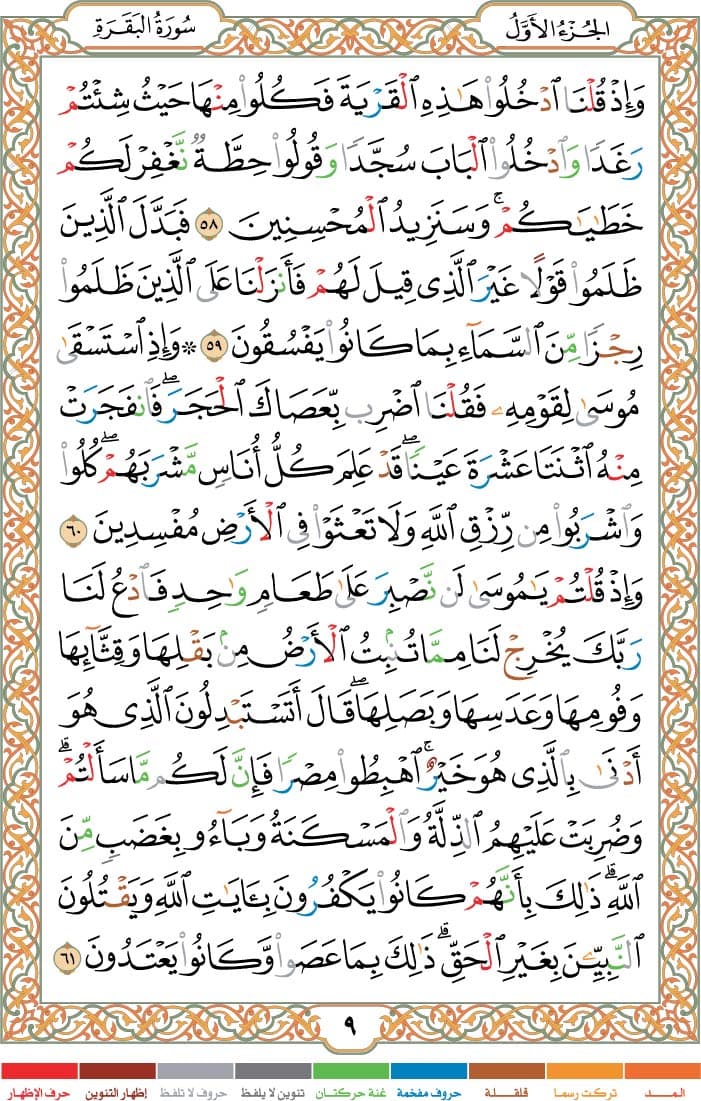 الجُزْءُ الأَوَّلُ
سُورَةُ البَقَرَةِ
وَإِذْ قُلْنَا ٱدْخُلُوا۟ هَٰذِهِ ٱلْقَرْيَةَ فَكُلُوا۟ مِنْهَا حَيْثُ شِئْتُمْ
رَغَدًا وَٱدْخُلُوا۟ ٱلْبَابَ سُجَّدًا وَقُولُوا۟ حِطَّةٌ نَّغْفِرْ لَكُمْ
خَطَٰيَٰكُمْ ۚ وَسَنَزِيدُ ٱلْمُحْسِنِينَ ٥٨ فَبَدَّلَ ٱلَّذِينَ
ظَلَمُوا۟ قَوْلًا غَيْرَ ٱلَّذِى قِيلَ لَهُمْ فَأَنزَلْنَا عَلَى ٱلَّذِينَ ظَلَمُوا۟
رِجْزًا مِّنَ ٱلسَّمَآءِ بِمَا كَانُوا۟ يَفْسُقُونَ ٥٩ * وَإِذِ ٱسْتَسْقَىٰ
مُوسَىٰ لِقَوْمِهِۦ فَقُلْنَا ٱضْرِب بِّعَصَاكَ ٱلْحَجَرَ ۖ فَٱنفَجَرَتْ
مِنْهُ ٱثْنَتَا عَشْرَةَ عَيْنًا ۖ قَدْ عَلِمَ كُلُّ أُنَاسٍ مَّشْرَبَهُمْ ۖ كُلُوا۟
وَٱشْرَبُوا۟ مِن رِّزْقِ ٱللَّهِ وَلَا تَعْثَوْا۟ فِى ٱلْأَرْضِ مُفْسِدِينَ ٦٠
وَإِذْ قُلْتُمْ يَٰمُوسَىٰ لَن نَّصْبِرَ عَلَىٰ طَعَامٍ وَٰحِدٍ فَٱدْعُ لَنَا
رَبَّكَ يُخْرِجْ لَنَا مِمَّا تُنۢبِتُ ٱلْأَرْضُ مِنۢ بَقْلِهَا وَقِثَّآئِهَا
وَفُومِهَا وَعَدَسِهَا وَبَصَلِهَا ۖ قَالَ أَتَسْتَبْدِلُونَ ٱلَّذِى هُوَ
أَدْنَىٰ بِٱلَّذِى هُوَ خَيْرٌ ۚ ٱهْبِطُوا۟ مِصْرًا فَإِنَّ لَكُم مَّا سَأَلْتُمْ ۗ
وَضُرِبَتْ عَلَيْهِمُ ٱلذِّلَّةُ وَٱلْمَسْكَنَةُ وَبَآءُو بِغَضَبٍ مِّنَ
ٱللَّهِ ۗ ذَٰلِكَ بِأَنَّهُمْ كَانُوا۟ يَكْفُرُونَ بِـَٔايَٰتِ ٱللَّهِ وَيَقْتُلُونَ
ٱلنَّبِيِّـۧنَ بِغَيْرِ ٱلْحَقِّ ۗ ذَٰلِكَ بِمَا عَصَوا۟ وَّكَانُوا۟ يَعْتَدُونَ ٦١
٩
المــد
تركت رسما
قلقلة
حروف مفخمة
غنة حركتان
تنوين لا يلفظ
حروف لا تلفظ
إظهار التنوين
حرف الإظهار